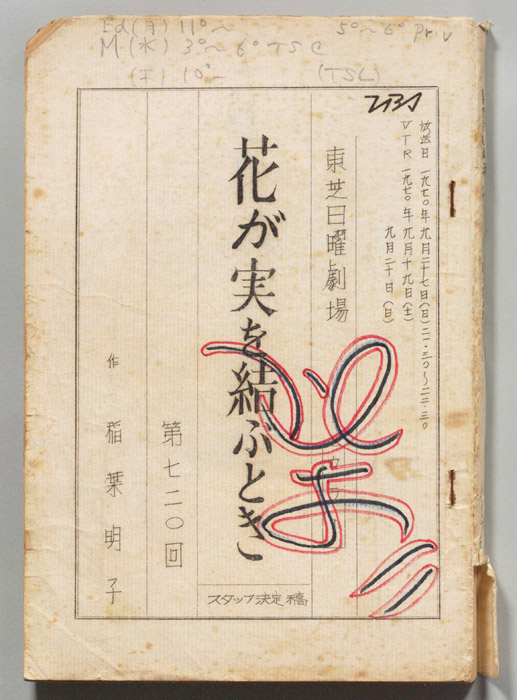 Ed(月) 11°〜
5°〜6° Pr.v
M(水) 3°〜6° TSC
10°〜
(TSL)
TBS
放送日 一九七〇年 九月二十七日(日)二一・三〇〜二二・三〇
VTR 一九七〇年 九月十九日(土)
九月二十日(日)
東芝日曜劇場
カラー
花が実を結ぶとき
第七二〇回
作 稲葉明子
スタッフ決定稿